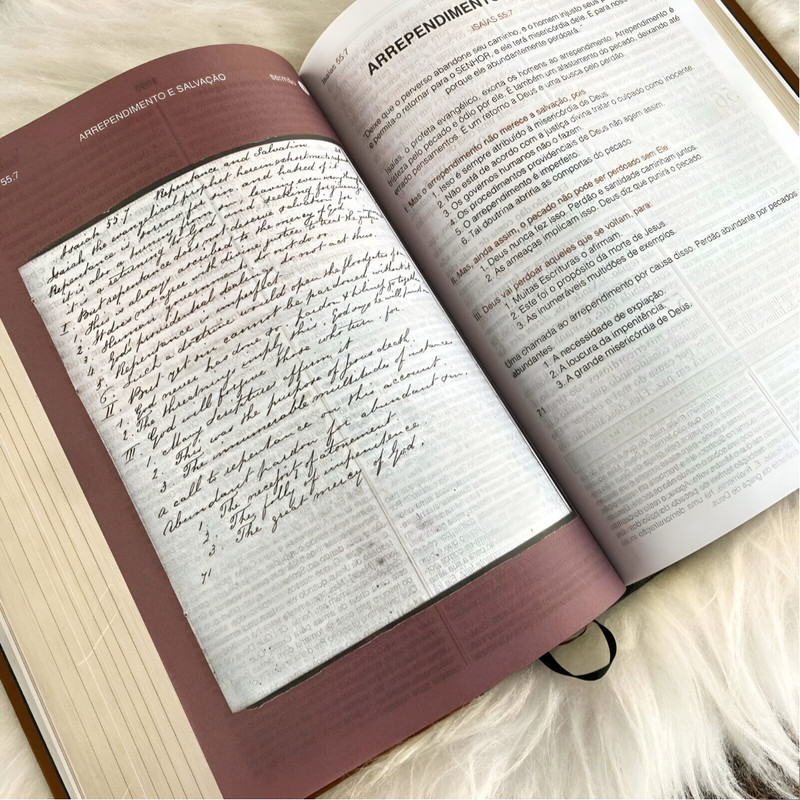 55.7
ARREPENDIMENTO E SALVAÇÃO
Isaiah 55.7 Repentance and Salvation
Isaiah the evangelical prophet herein exhorts
Repentance is sorrow for sin and hatred of it
it is also a turning from sin, leaving even
it is a returning to God and a seeking forgiveness
I. But repentance does not deserve salvation for
1. This is always ascribed to the mercy of God
2. It does not agree with divine justice to
3. Human governments do not do so
4. God's providential dealings do not act thus.
5. Repentance is imperfect
6. Such a doctrine would open the floodgates of
II. But yet sin cannot be pardoned without it
1. God never has done so. pardon &
2. The threatenings imply this. God says he will punish
III. God will forgive those who turn. for.
1. Many Scriptures affirm it
2. This was the purpose of Jesus death.
3. The innumerable multitudes of instances
a call to repentance on this account
Abundant pardon for abundant sin.
1. The necessity of atonement
2. The folly of impenitence
3. The great mercy of God.
71
Isaías 55.7
ARREPENDIMENTO
ISAÍAS 55.7
"Deixe que o perverso abandone seu caminho, e o homem injusto seus
e permita-o retornar para o SENHOR, e ele terá misericórdia dele. E para nosso
porque ele abundantemente perdoará."
Isaías, o profeta evangélico, exorta os homens ao arrependimento. Arrependimento é
tristeza pelo pecado e ódio por ele. É também um afastamento do pecado, deixando até
errado pensamentos. É um retorno a Deus e uma busca pelo perdão.
I. Mas o arrependimento não merece a salvação, pois
1. Isso é sempre atribuído à misericórdia de Deus.
2. Não está de acordo com a justiça divina tratar o culpado como inocente.
3. Os governos humanos não o fazem.
4. Os procedimentos providenciais de Deus não agem assim.
5. O arrependimento é imperfeito.
6. Tal doutrina abriria as comportas do pecado.
II. Mas, ainda assim, o pecado não pode ser perdoado sem Ele.
1. Deus nunca fez isso. Perdão e santidade caminham juntos.
2. As ameaças implicam isso. Deus diz que punirá o pecado.
III. Deus vai perdoar aqueles que se voltam, para:
1. Muitas Escrituras o afirmam.
2. Este foi o propósito da morte de Jesus.
3. As inumeráveis multidões de exemplos.
Uma chamada ao arrependimento por causa disso. Perdão abundante por pecados
abundantes.
1. A necessidade de expiação.
2. A loucura da impenitência.
3. A grande misericórdia de Deus.
71